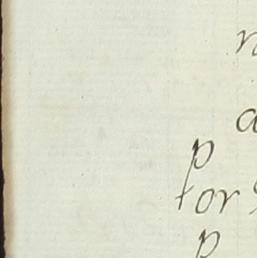 n
a
p
for
p